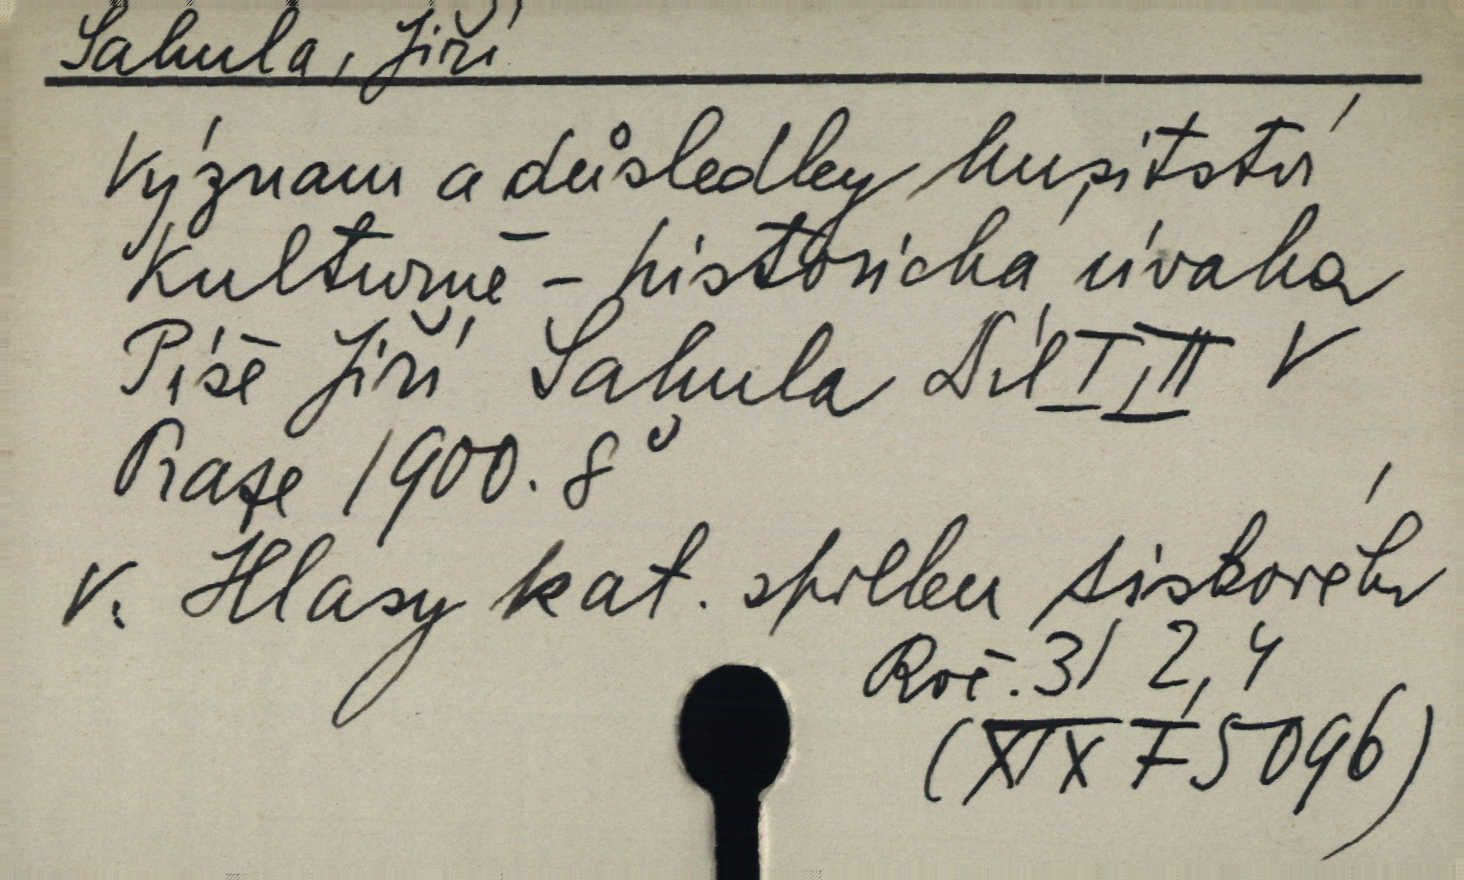 Sahula, Jiří
Význam a důsledky husitství
Kulturně - historická úvaha
Píše Jiří Sahula Díl I, II V
Praze 1900. 8°
V. Hlasy kat. spolku tiskového
Roč. 31 2, 4
(XIX F 5096)